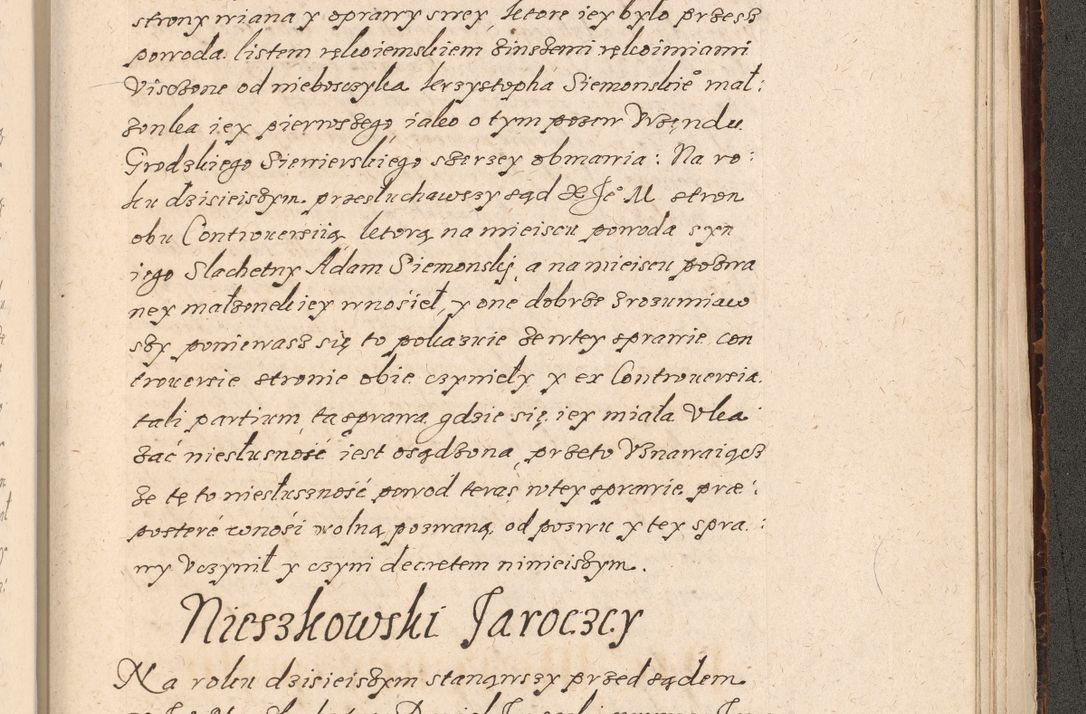 strony wiana y oprawy swey, ktore iey było przesz
powoda listem rękoiemskiem zinszemi rękoimiami
Viszone od nieboszczyka krzystopha Siemonskie° mał:
zonka iey pierwszego iako o tym pozew Vrzędu
Grodzkiego Siewierskiego szerzey obmawia: Na ro:
ku dzisieiszym przesłuchawszy sąd Je° M stron
obu Controuersiią, ktorą na mieiscu powoda syn
iego Slachetny Adam Siemonskj, a na mieiscu pozwa
ney małzonekiey wnosieł, y one dobrze zrozumiaw
szy poniewasz się to pokazuie ze wtey sprawie con
trouersie stronie obie czynieły y ex Controuersia
tali partium, ta sprawa gdzie się iey miała Vka
zać niesłusność iest osądzona, przeto Vznawaiącz
ze tę to niesłuszność powod teraz wtey sprawie præ:
posteré wnosi wolną pozwaną, od pozwu y tey spra:
wy Vczynił y czyni decretem ninieiszym.
Nieszkowski Jaroczcy
Na roku dzisieiszym stanąwszy przed sądem